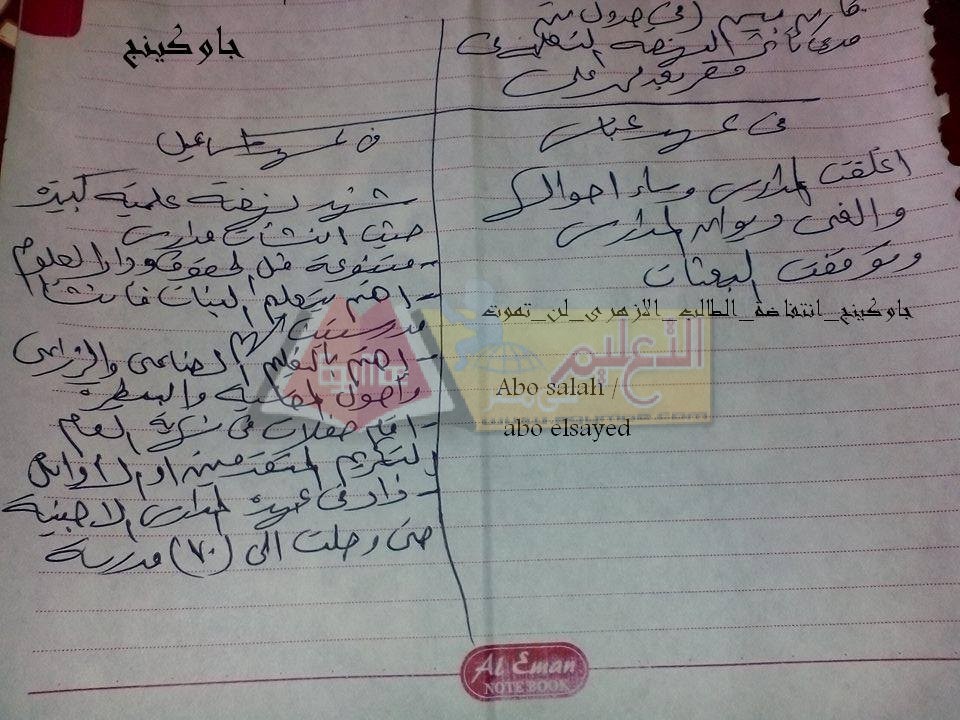 جاوكينج
قارن بين (فى جدول) بين
مدى تأثر النهضة التعليمية فى
مصر بعد محمد على
فى عهد عباس
اغلقت المدارس وساء احوالـ
والغى ديوان المدارس
وتوقفت البعثات
فى عهد اسماعيل
شهد نهضة علمية كبيرة
حيث انشأت مدارس
متنوعة مثل الحقوق ودار العلوم
- اهتم بتعليم البنات فانشأ
مدرستين لهم
- اهتم بالتعليم الصناعى والزراعى
واصول المحاسبة والبيطرة
- اقام حفلات فى نهاية العام
لتكريم المتقدمين او الأوائل
- زاد فى عهده المدارس الاجنبية
حتى وصلت الى (٧٠) مدرسة
جاوكينج_انتفاضة_الطالب_الازهرى_لن_تموت
التعليم
Abo salah /
abo elsayed
Al Eman
NOTE BOOK